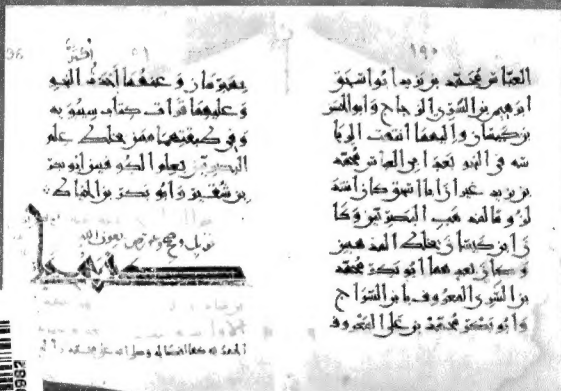 ١٩٥
العباس محمد بن يزيد ابو اسحق
ابرهيم بن السري الزجاج وابو الحسن
بن كيسان واليهما انتهت الريا
سة في النحو بعد ابي العباس محمد
بن يزيد غير ان ابا اسحق كان اشد
لزوما لمذهب البصريين وكا
ن ابن كيسان يخلط المذهبين
وكان بعدهما ابو بكر محمد
بن السري المعروف بابن السراج
وابو بكر محمد بن علي المعروف
بمبرمان وعنهما اخذت النحو
وعليهما قرات كتاب سيبويه
وفي طبقتهما ممن يخلط علم
البصريين بعلم الكوفيين ابو بكر
بن شقير وابو بكر بن الخياط
قوبل وصح بعون الله
الحمد لله وصلى الله على محمد